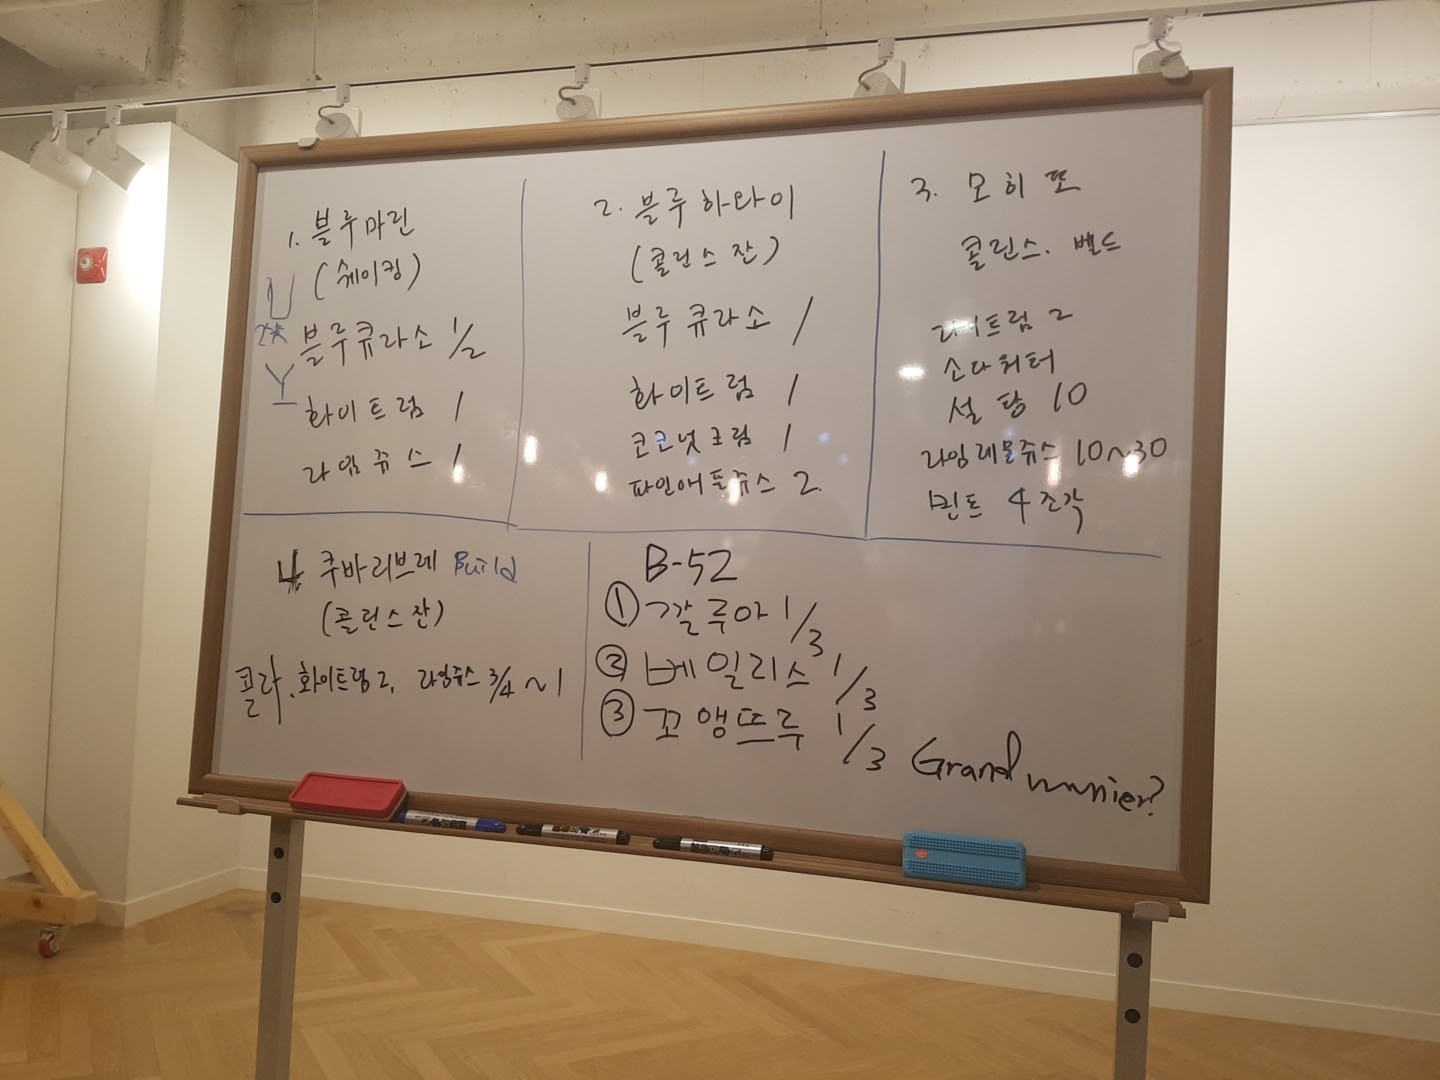 1. 블루마린
(쉐이킹)
블루큐라소 1/2
화이트럼 1
라임쥬스 1
2. 블루하와이
(콜린스잔)
블루큐라소 1
화이트럼 1
코코넛크림 1
파인애플쥬스 2
3. 모히또
콜린스. 밸드
라이트럼 2
소다워터
설탕 10
라임레몬쥬스 10~30
민트 4조각
4 쿠바리브레 Build
(콜린스잔)
콜라. 화이트럼 2, 라임쥬스 3/4 ~ 1
B-52
① 깔루아 1/3
② 베일리스 1/3
③ 꼬앵뜨루 1/3 Grand